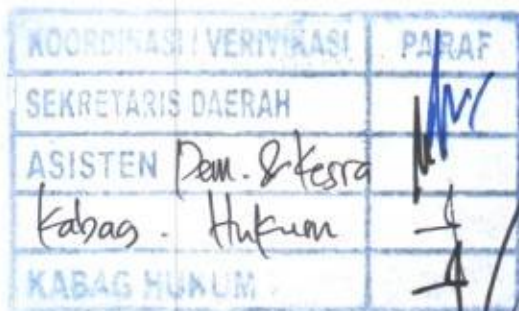 KOORDINASI / VERIVIKASI PARAF
SEKRETARIS DAERAH
ASISTEN Pem. & Kesra
Kabag. Hukum
KABAG HUKUM